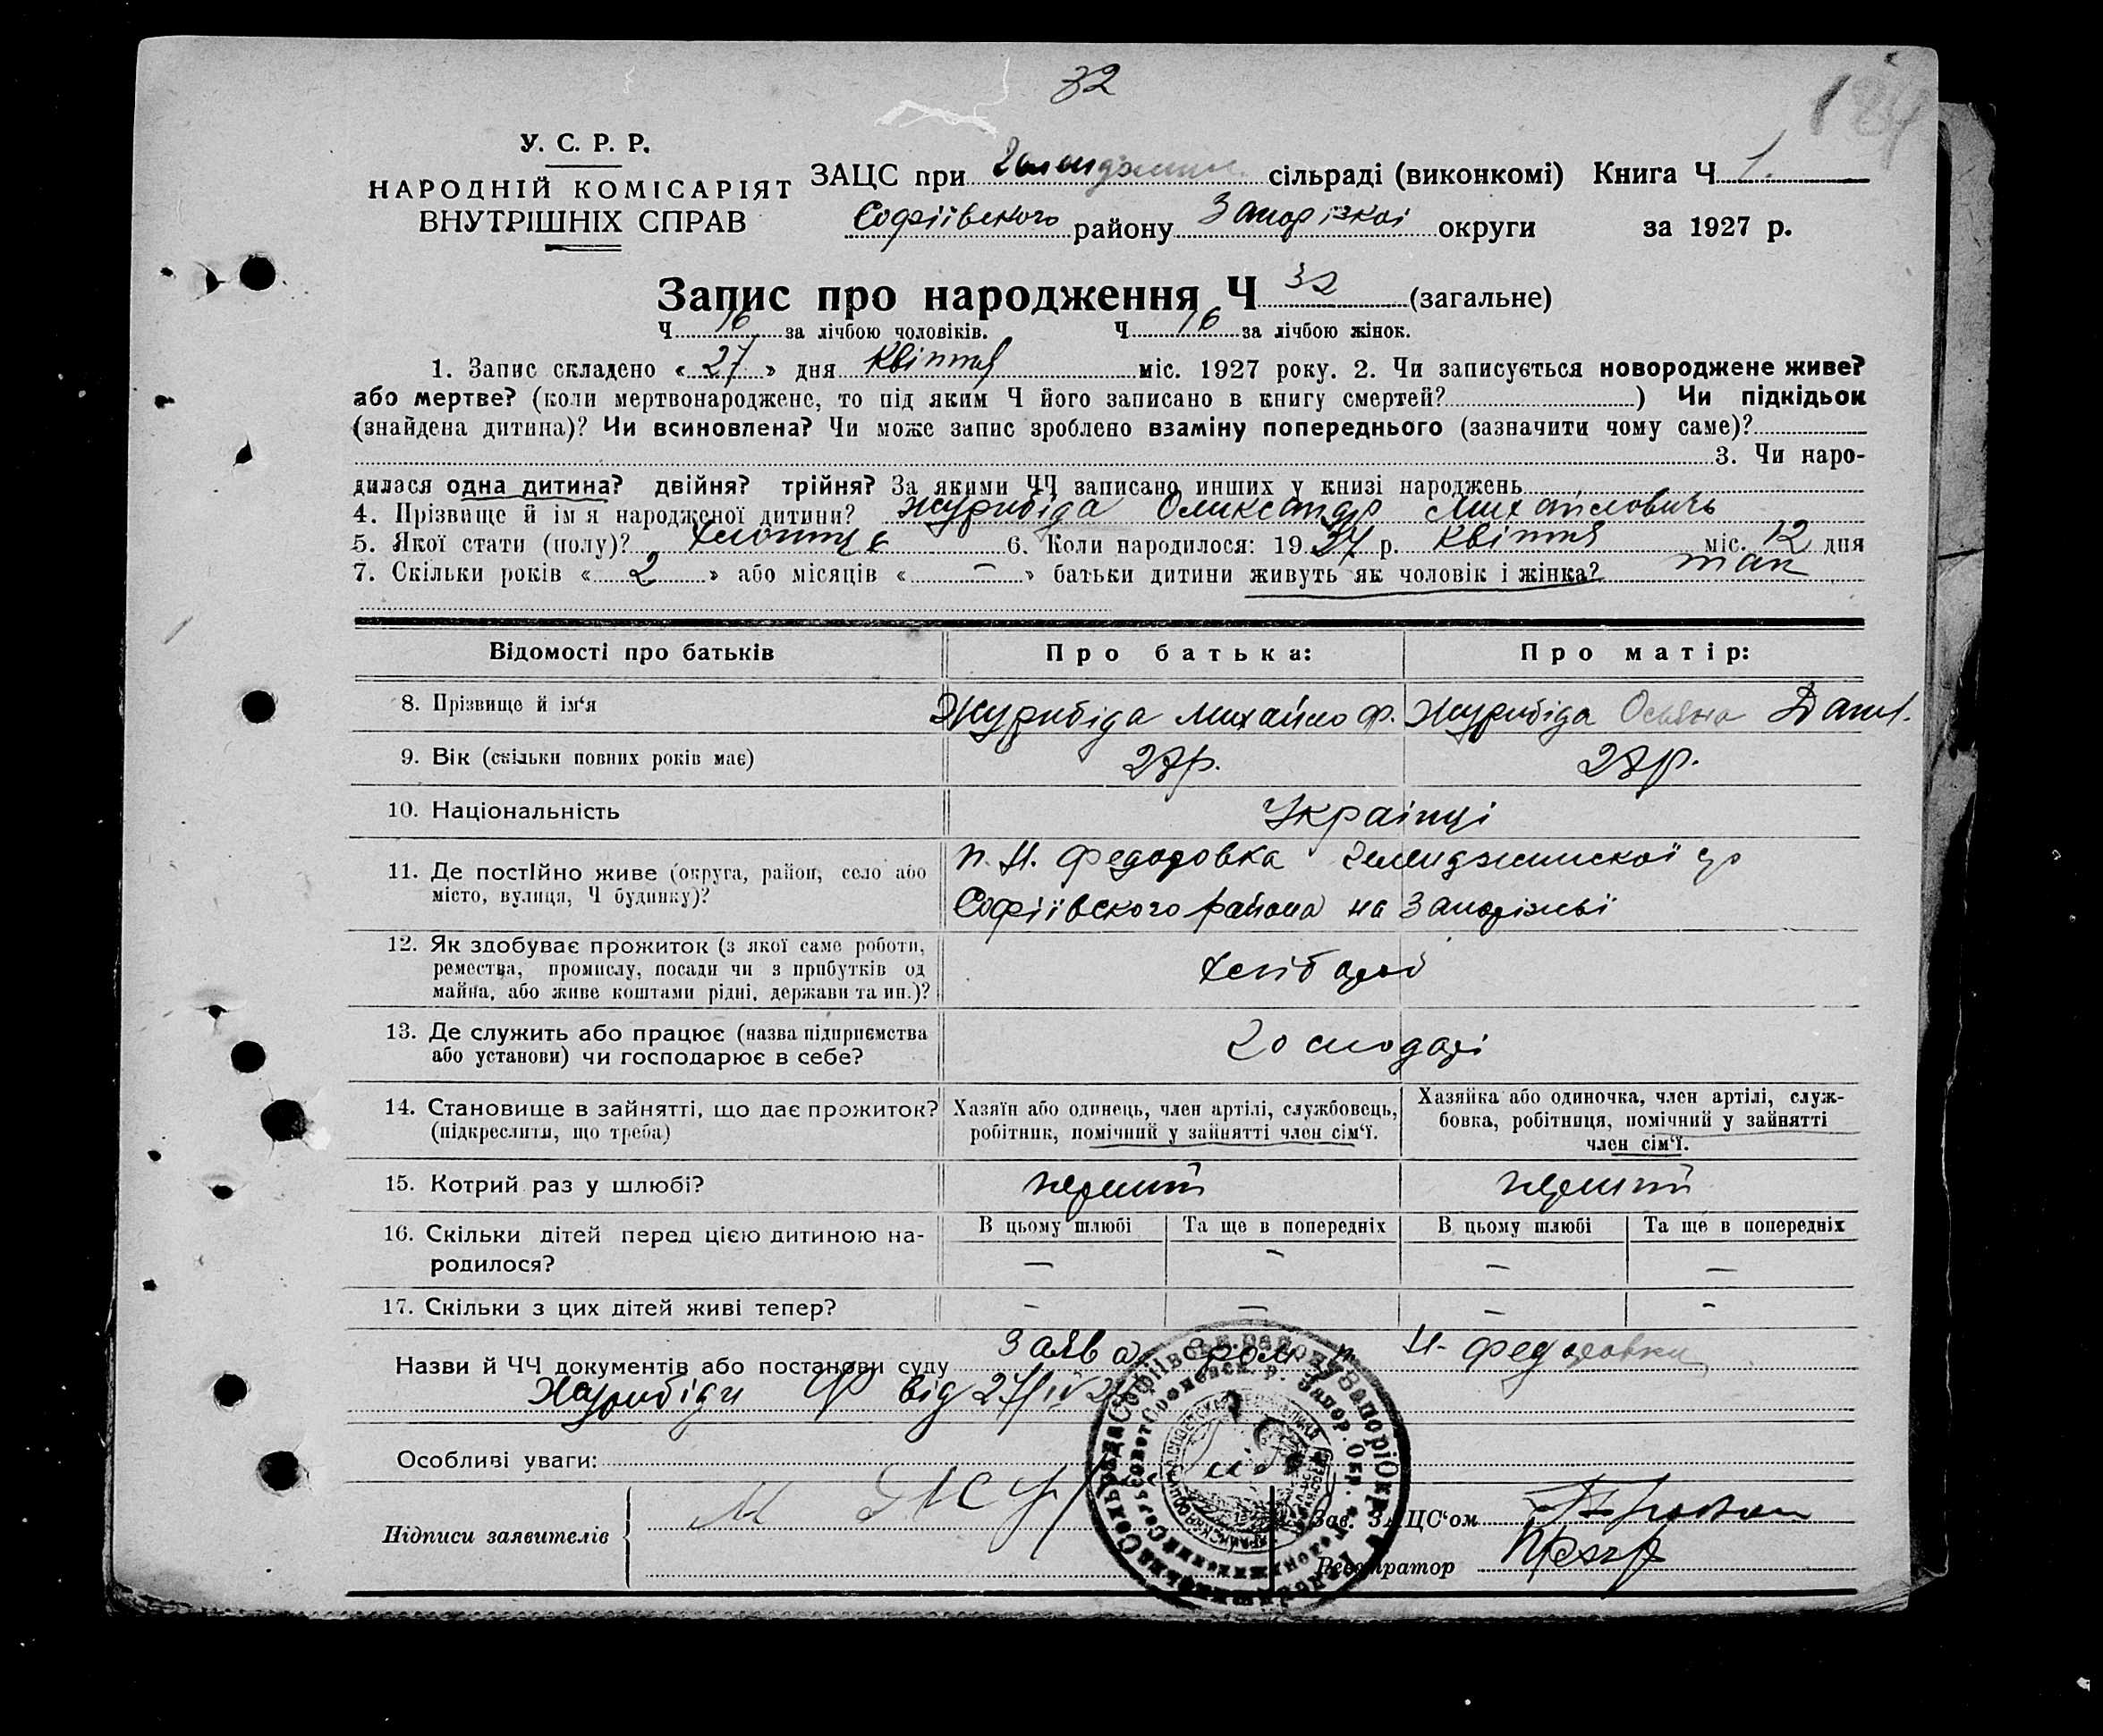 32
184
У. С. Р. Р.
НАРОДНІЙ КОМІСАРІЯТ
ВНУТРІШНІХ СПРАВ
ЗАЦС при сільраді (виконкомі) Книга Ч 1.
Софіївского району Запорізкоі округи за 1927 р.
Запис про народження Ч 32 (загальне)
Ч 16 за лічбою чоловіків. Ч 16 за лічбою жінок.
1. Запис складено « 27 » дня Квітня міс. 1927 року. 2. Чи записується новороджене живе?
або мертве? (коли мертвонароджене, то під яким Ч його записано в книгу смертей? ) Чи підкідьок
(знайдена дитина)? Чи всиновлена? Чи може запис зроблено взаміну попереднього (зазначити чому саме)?
3. Чи наро-
дилася одна дитина? двійня? трійня? За якими ЧЧ записано инших у книзі народжень
4. Прізвище й ім я народженої дитини? Журибіда Оликсандр Михайлович
5. Якої стати (полу)? 6. Коли народилося: 19 27 р. Квітня міс. 12 дня
7. Скільки років « 2 » або місяців « — » батьки дитини живуть як чоловік і жінка? так
Відомості про батьків Про батька: Про матір:
8. Прізвище й ім‘я Журибіда Михайло Ф. Журибіда Данил.
9. Вік (скільки повних років має) 27р. 27р.
10. Національність Украінці
11. Де постійно живе (округа, район, село або
місто, вулиця, Ч будинку)?
п. Н. Федоровка
Софіївского района на Запоріжьї
12. Як здобуває прожиток (з якої саме роботи,
ремества, промислу, посади чи з прибутків од
майна, або живе коштами рідні, держави та ин.)?
хлібороб
13. Де служить або працює (назва підприємства
або установи) чи господарює в себе?
Господарі
14. Становище в зайнятті, що дає прожиток?
(підкреслити, що треба)
Хазяїн або одинець, член артілі, службовець,
робітник, помічний у зайнятті член сім‘ї.
Хазяйка або одиночка, член артілі, служ-
бовка, робітниця, помічний у зайнятті
член сім‘ї.
15. Котрий раз у шлюбі? перший перший
16. Скільки дітей перед цією дитиною на-
родилося?
В цьому шлюбі Та ще в попередніх В цьому шлюбі Та ще в попередніх
— — — —
17. Скільки з цих дітей живі тепер? - — — -
Назви й ЧЧ документів або постанови суду Заява гром. п. Н-Федоровки
Журибіди Ф від 27/IV 27
Особливі уваги:
Підписи заявителів
М Жур
Зав. ЗАЦС‘ом
Реєстратор